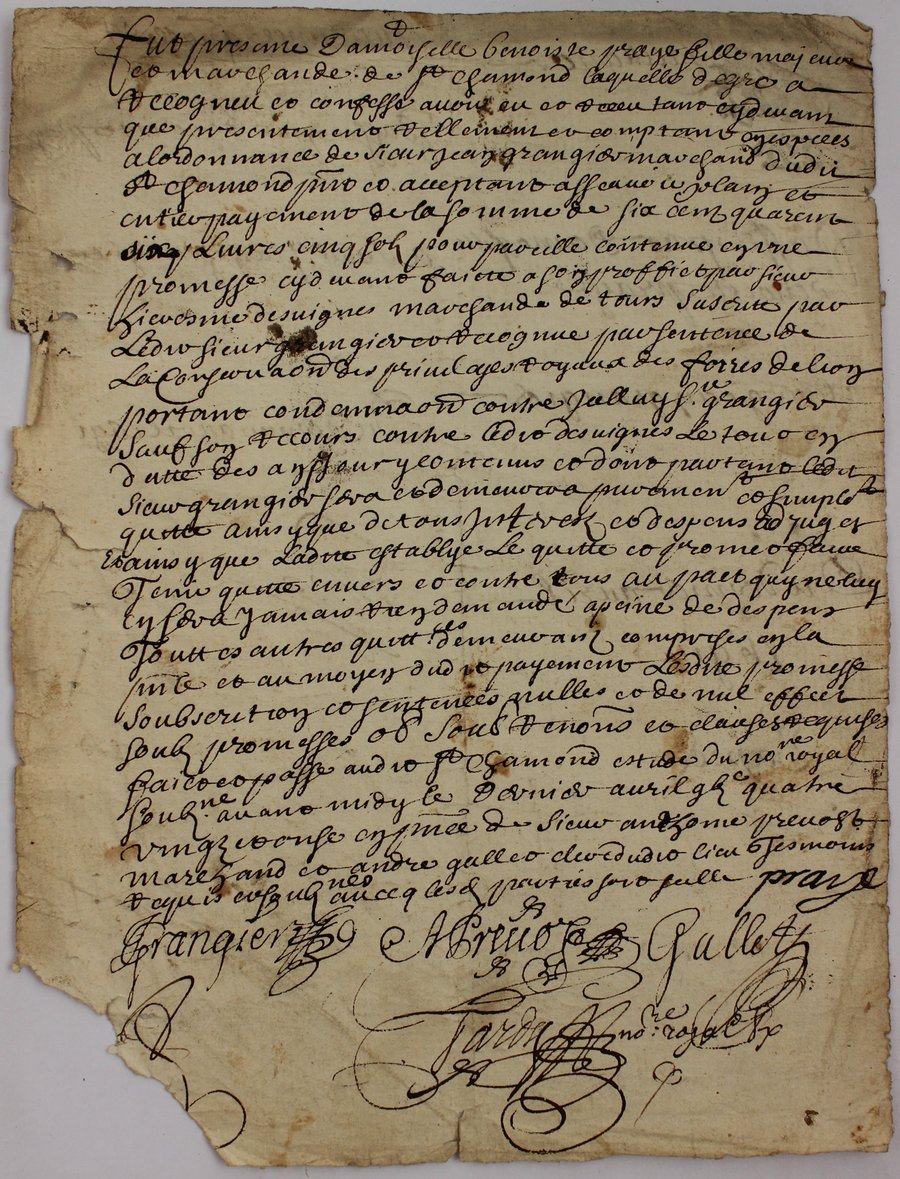 Fut presente Damoiselle benoiste praye fille majeure
et marchande de St chamond laquelle de gre a
recogneu et confesse avoir eu et receu tant cydevant
que presentement reellement et comptant en especes
a lordonnance de sieur jean grangier marchand dudit
St chamond pnt et acceptant assavoir le plain et
entier payement de la somme de six cent quarente
livres cinq solz pour pareille contenue en une
promesse cydevant faicte a son proffict par sieur
hierosme desvignes marchand de tours Suscrite par
Ledit sieur grangier et recognue par sentence de
La Conservaaon des privilages royaux des foires de lion
portant condemnaon contre Icelluy Sr grangier
Sauf son recours contre ledit desvignes Le tout en
datte des an jour y contenus et dont partant ledit
sieur grangier sera et demeurera purement et simplet
quitte ainsy que de tous Interestz et despens adjugez
Et ainsy que Ladite establye Le quitte et promet faire
Tenir quitte envers et contre tous au pact quy ne luy
en sera Jamais rien demandé a peine de despens
Touttes autres quittces demeurans comprises en la
pnte et au moyen dudit payement Lesdite promesse
soubscription et sentences nulles et de nul effect
soubz promesses ob soub renons et clauses requises
faict et passe audit St Chamond estude du nore royal
soubzne avant midy le Dernier avril gbc quatre
vingz et onse en pnce de sieur anthome prevost
marchand et andre gallet clerc dudit lieu Tesmoins
requis et soubznes avec lesd parties praye
Grangier A Prevost Gallet
Tardy nore royal